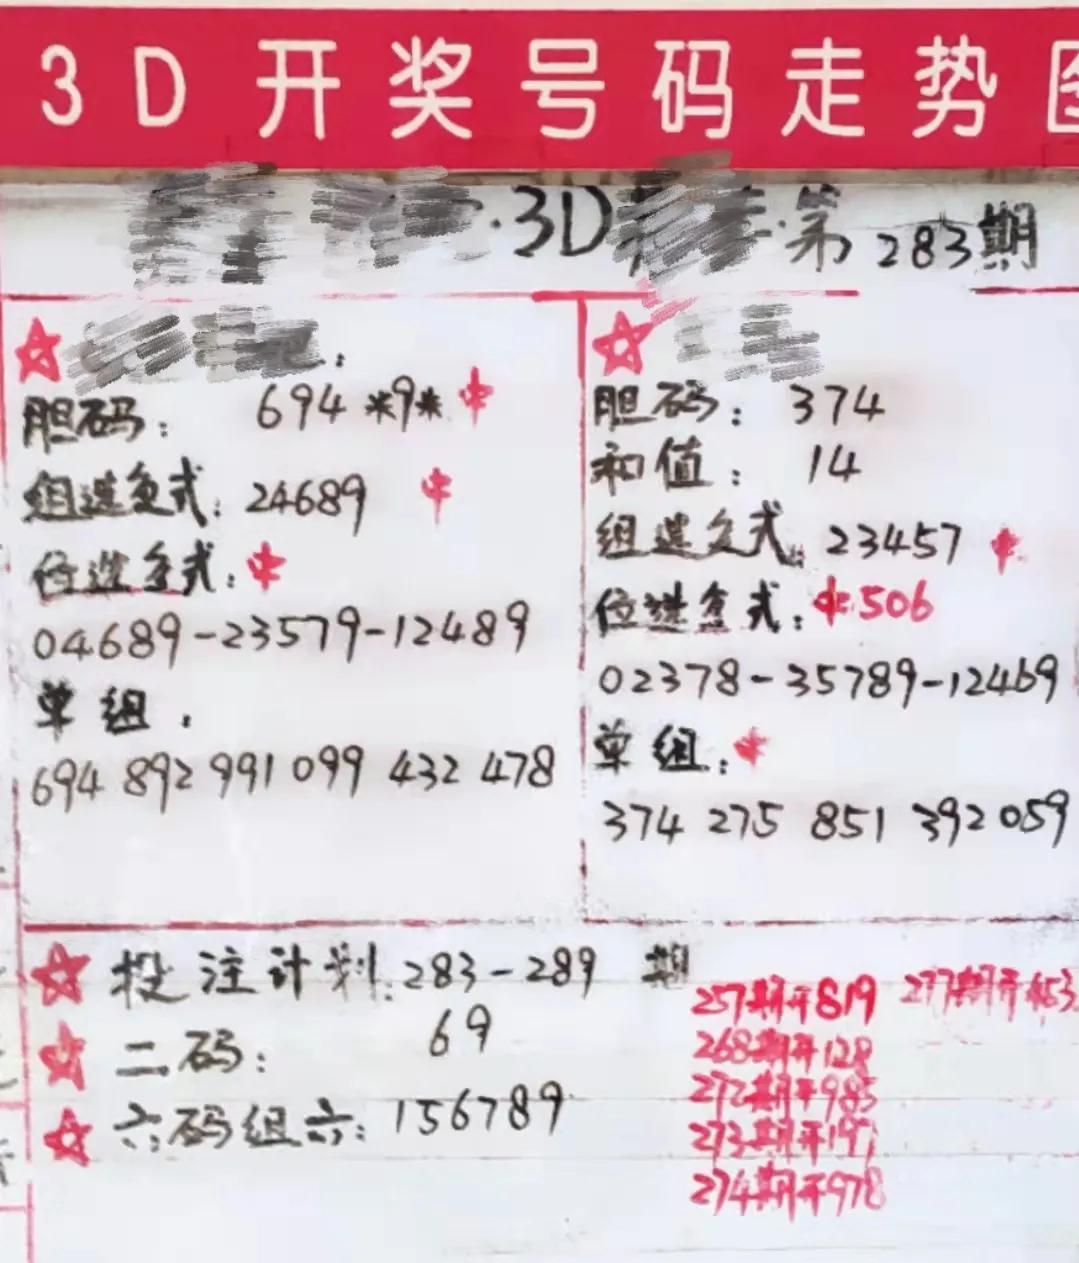 3D开奖号码走势
·3D
第283期
胆码: 694 *9* 中
组选复式: 24689 中
位选复式: 中
04689-23579-12489
单组:
694 892 991 099 432 478
胆码: 374
和值: 14
组选复式: 23457 中
位选复式: 中506
02378-35789-12469
单组: 中
374 275 851 392 059
投注计划: 283-289 期
二码: 69
六码组六: 156789
257期开819
268期开128
272期开985
273期开197
274期开978
277期开